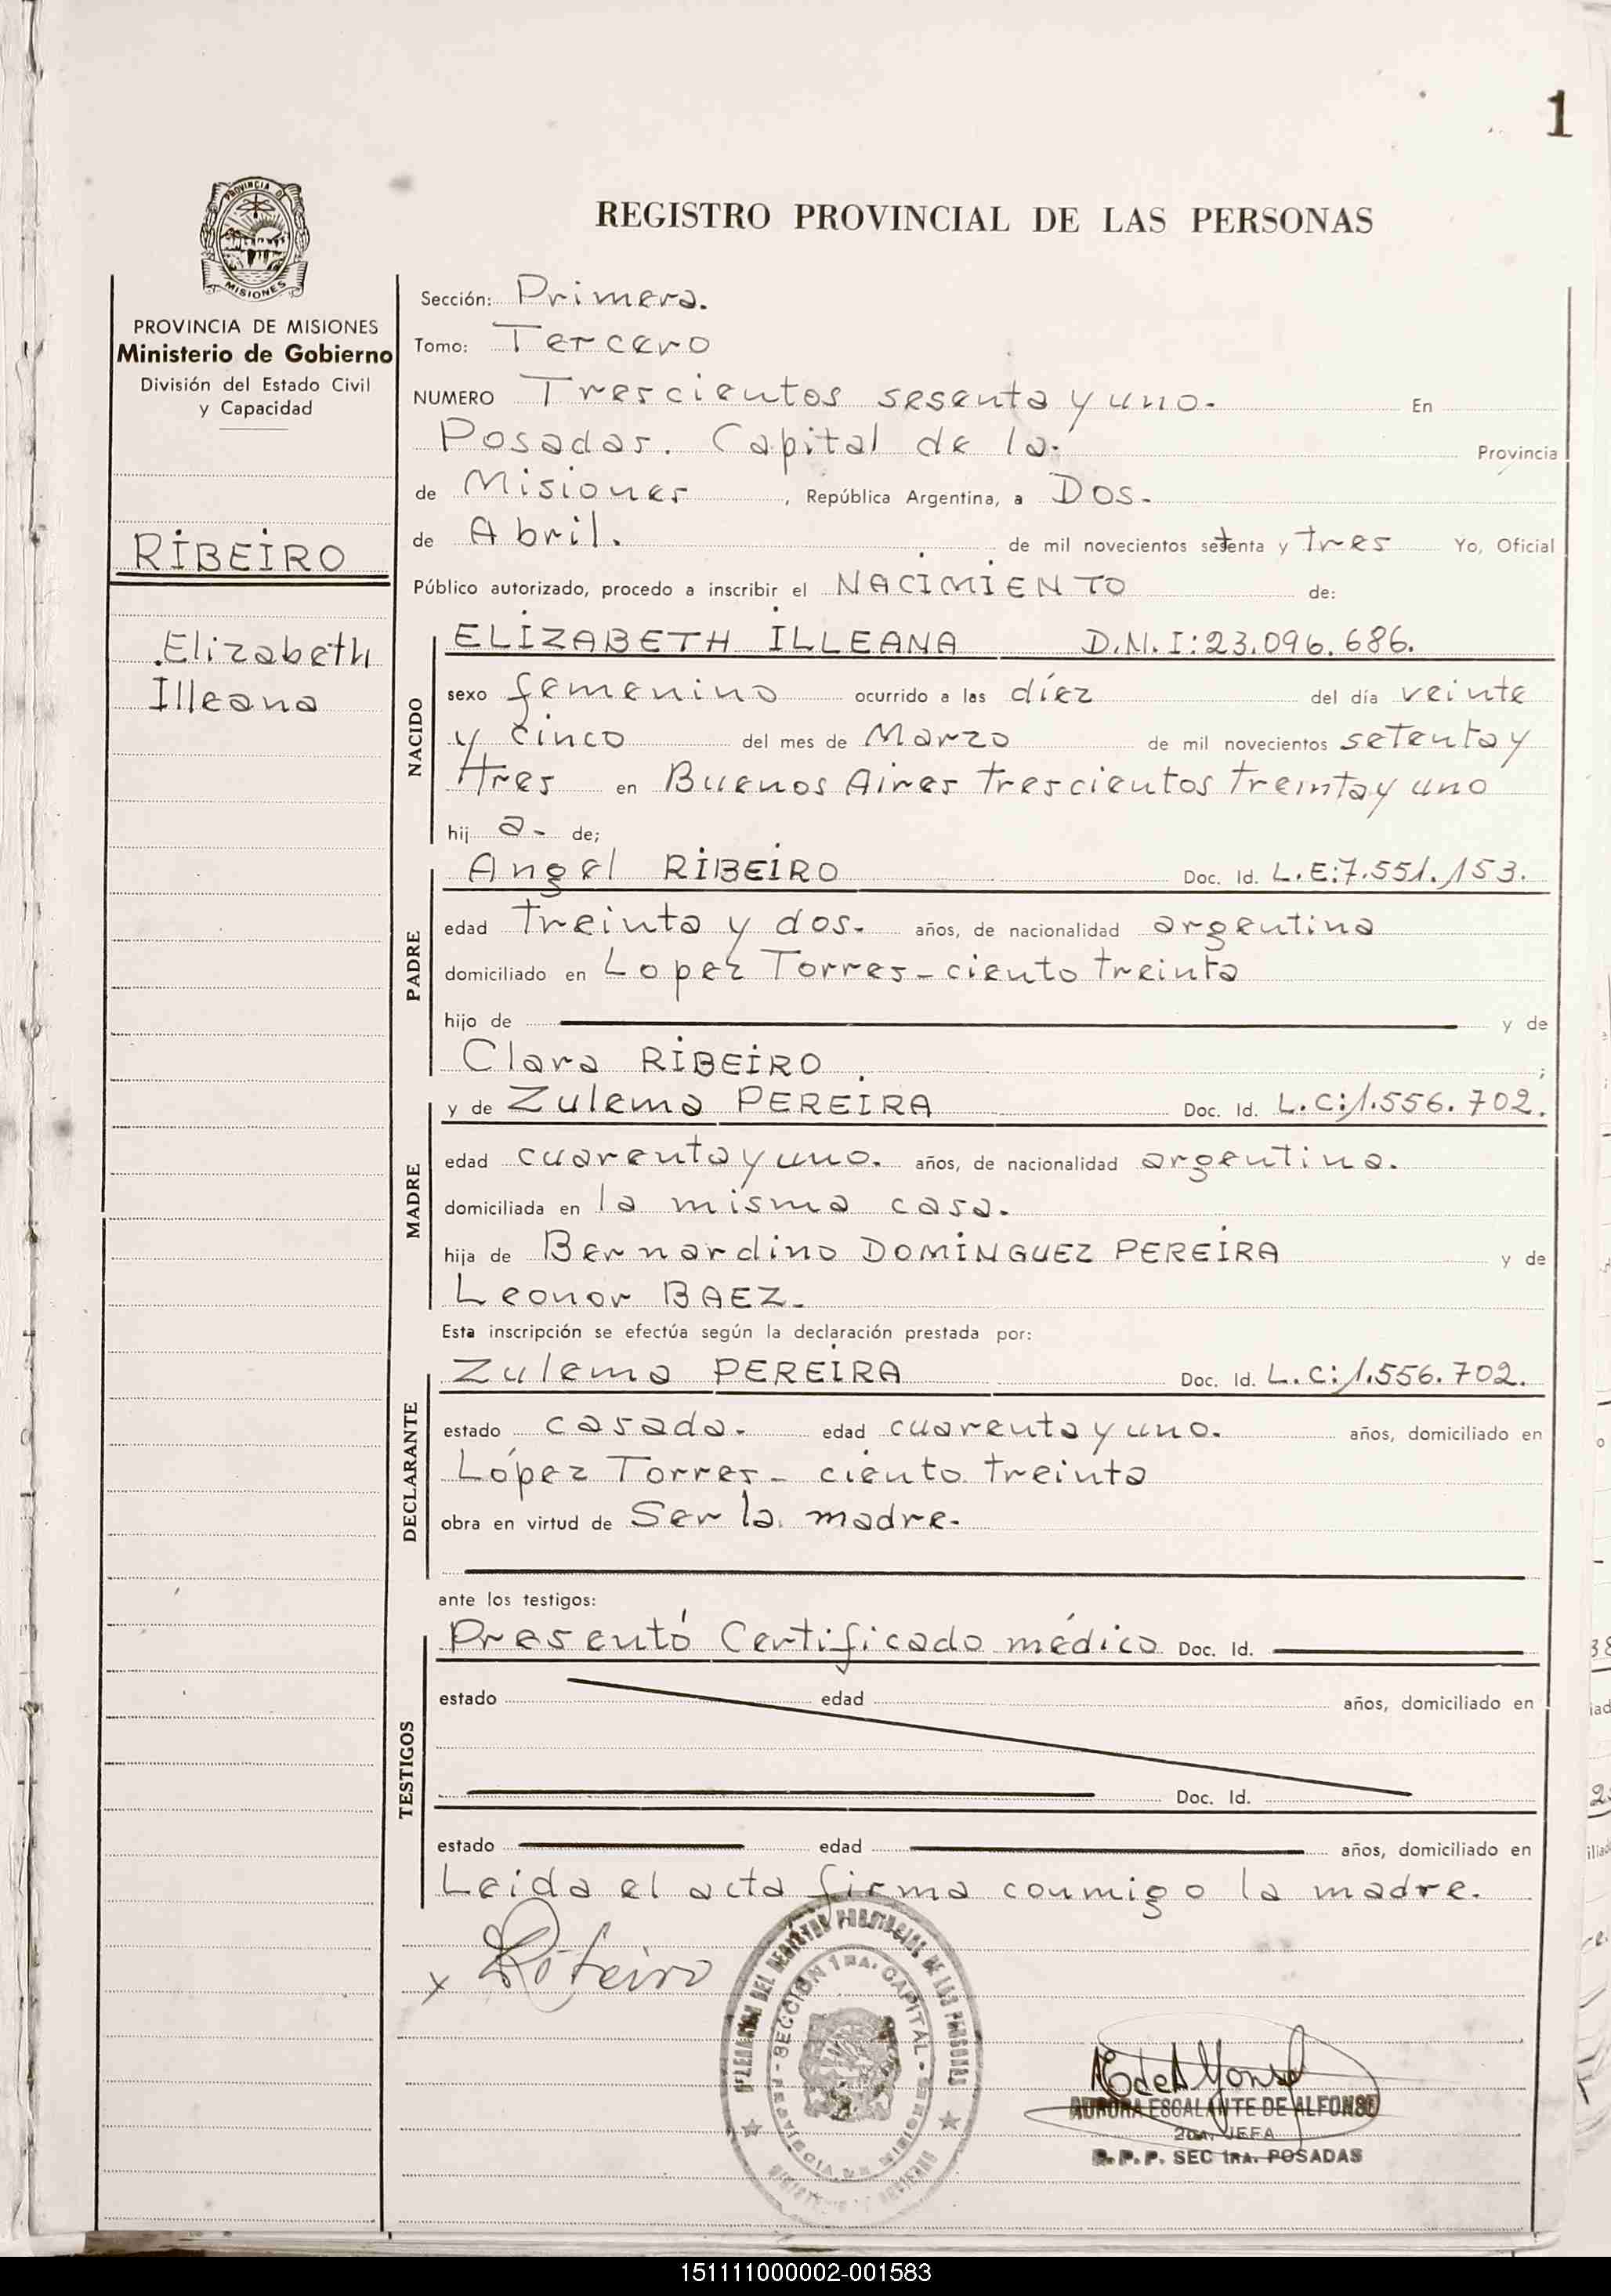 1
PROVINCIA DE
MISIONES
PROVINCIA DE MISIONES
Ministerio de Gobierno
División del Estado Civil
y Capacidad
RIBEIRO
Elizabeth
Illeana
REGISTRO PROVINCIAL DE LAS PERSONAS
Sección: Primera.
Tomo: Tercero
NUMERO Trescientos sesenta y uno. En
Posadas. Capital de la. Provincia
de Misiones, República Argentina, a Dos.
de Abril. de mil novecientos setenta y tres Yo, Oficial
Público autorizado, procedo a inscribir el NACIMIENTO de:
NACIDO
ELIZABETH ILLEANA D.N.I:23.096.686.
sexo femenino ocurrido a las díez del día veinte
y cinco del mes de Marzo de mil novecientos setenta y
tres en Buenos Aires trescientos treinta y uno
hij a- de;
PADRE
Angel RIBEIRO Doc. Id. L.E:7.551.153.
edad treinta y dos. años, de nacionalidad argentina
domiciliado en Lopez Torres-ciento treinta
hijo de y de
Clara RIBEIRO ;
MADRE
y de Zulema PEREIRA Doc. Id. L.C:1.556.702.
edad cuarenta y uno. años, de nacionalidad argentina.
domiciliada en la misma casa.
hija de Bernardino DOMINGUEZ PEREIRA y de
Leonor BAEZ.
Esta inscripción se efectúa según la declaración prestada por:
DECLARANTE
Zulema PEREIRA Doc. Id. L.C:1.556.702.
estado casada. edad cuarenta y uno. años, domiciliado en
López Torres- ciento treinta
obra en virtud de Ser la madre.
ante los testigos:
TESTIGOS
Presentó Certificado médico Doc. Id.
estado edad años, domiciliado en
Doc. Id.
estado edad años, domiciliado en
Leida el acta firma conmigo la madre.
x Ribeiro
DEL REGISTRO PROVINCIAL DE LAS PERSONAS
SECCION 1RA. CAPITAL
PROVINCIA DE MISIONES
AURORA ESCALANTE DE ALFONSO
2DA. JEFA
R. P. P. SEC 1RA. POSADAS
151111000002-001583